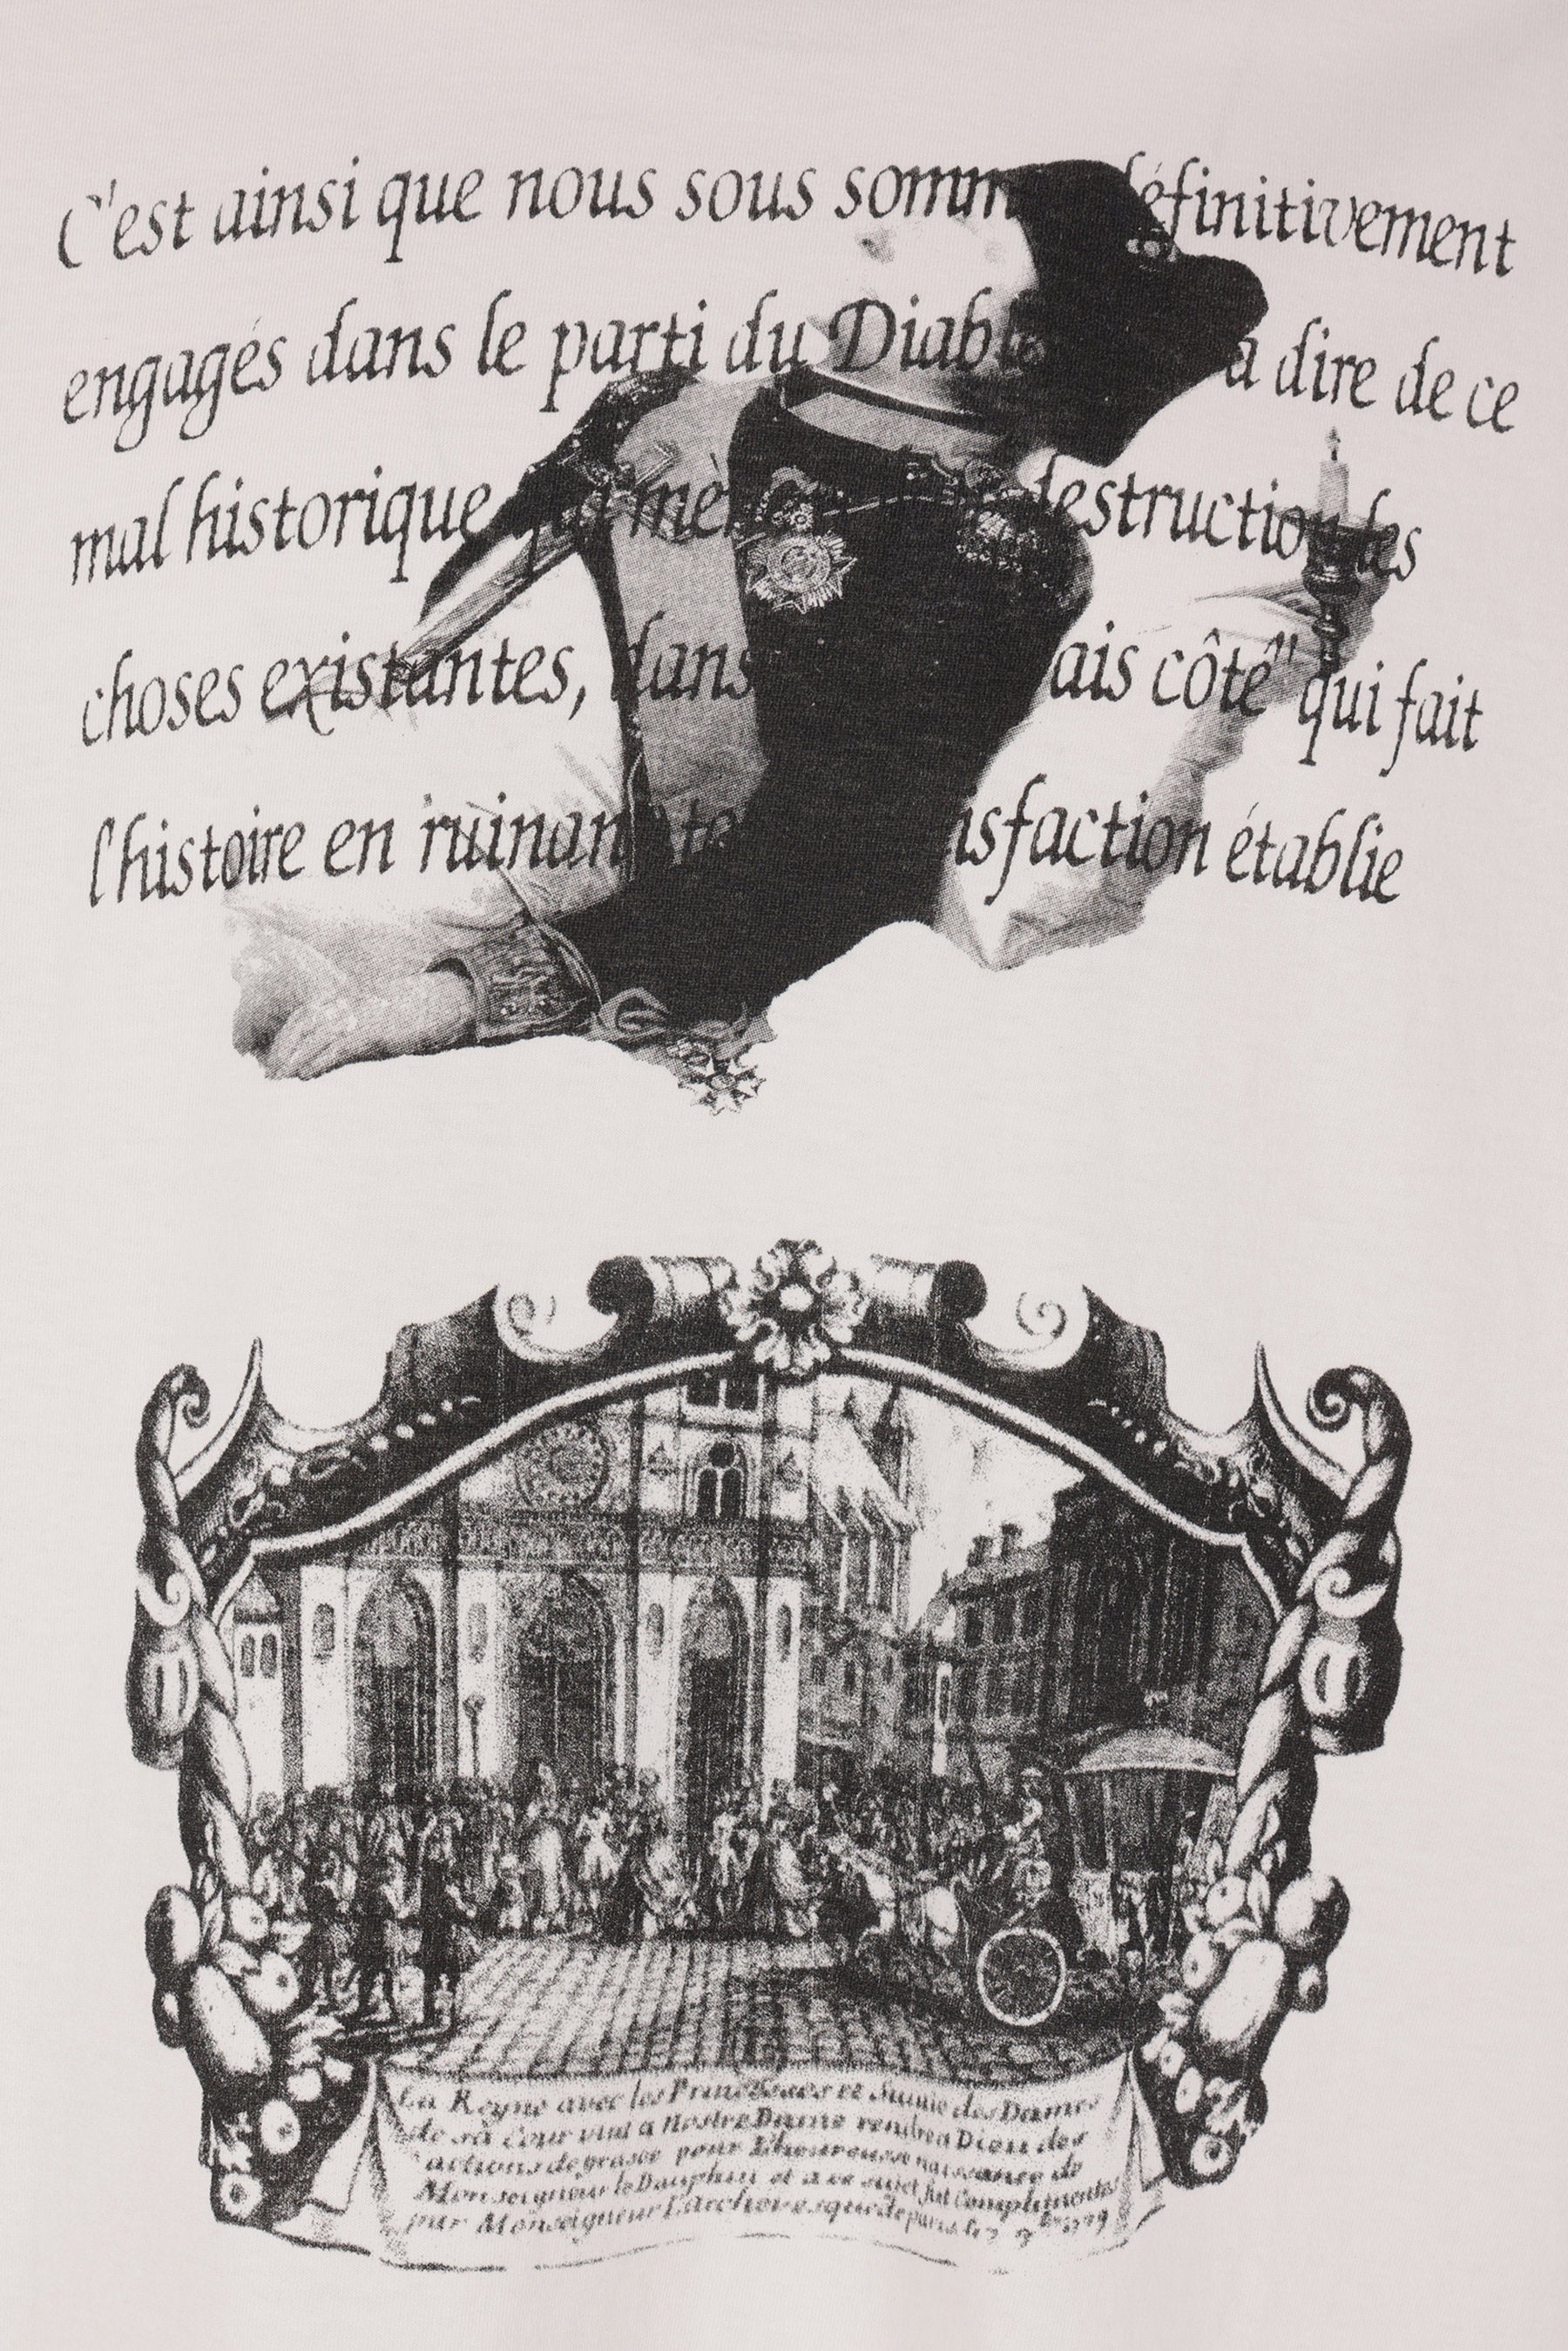 C'est ainsi que nous sous somm définitivement
engagés dans le parti du Diable a dire de ce
mal historique qui mè destruction des
choses existantes, dans ais côté" qui fait
l'histoire en ruinan te isfaction établie
La Reyne avec les Princesses et Suitte des Dames
de sa Cour vint a Nostre Dame rendre a Dieu des
actions de grasce pour L'heureuse naissance de
Monseigneur le Dauphin et a ce sujet fut Complimentée
par Monseigneur L'archevesque de paris le